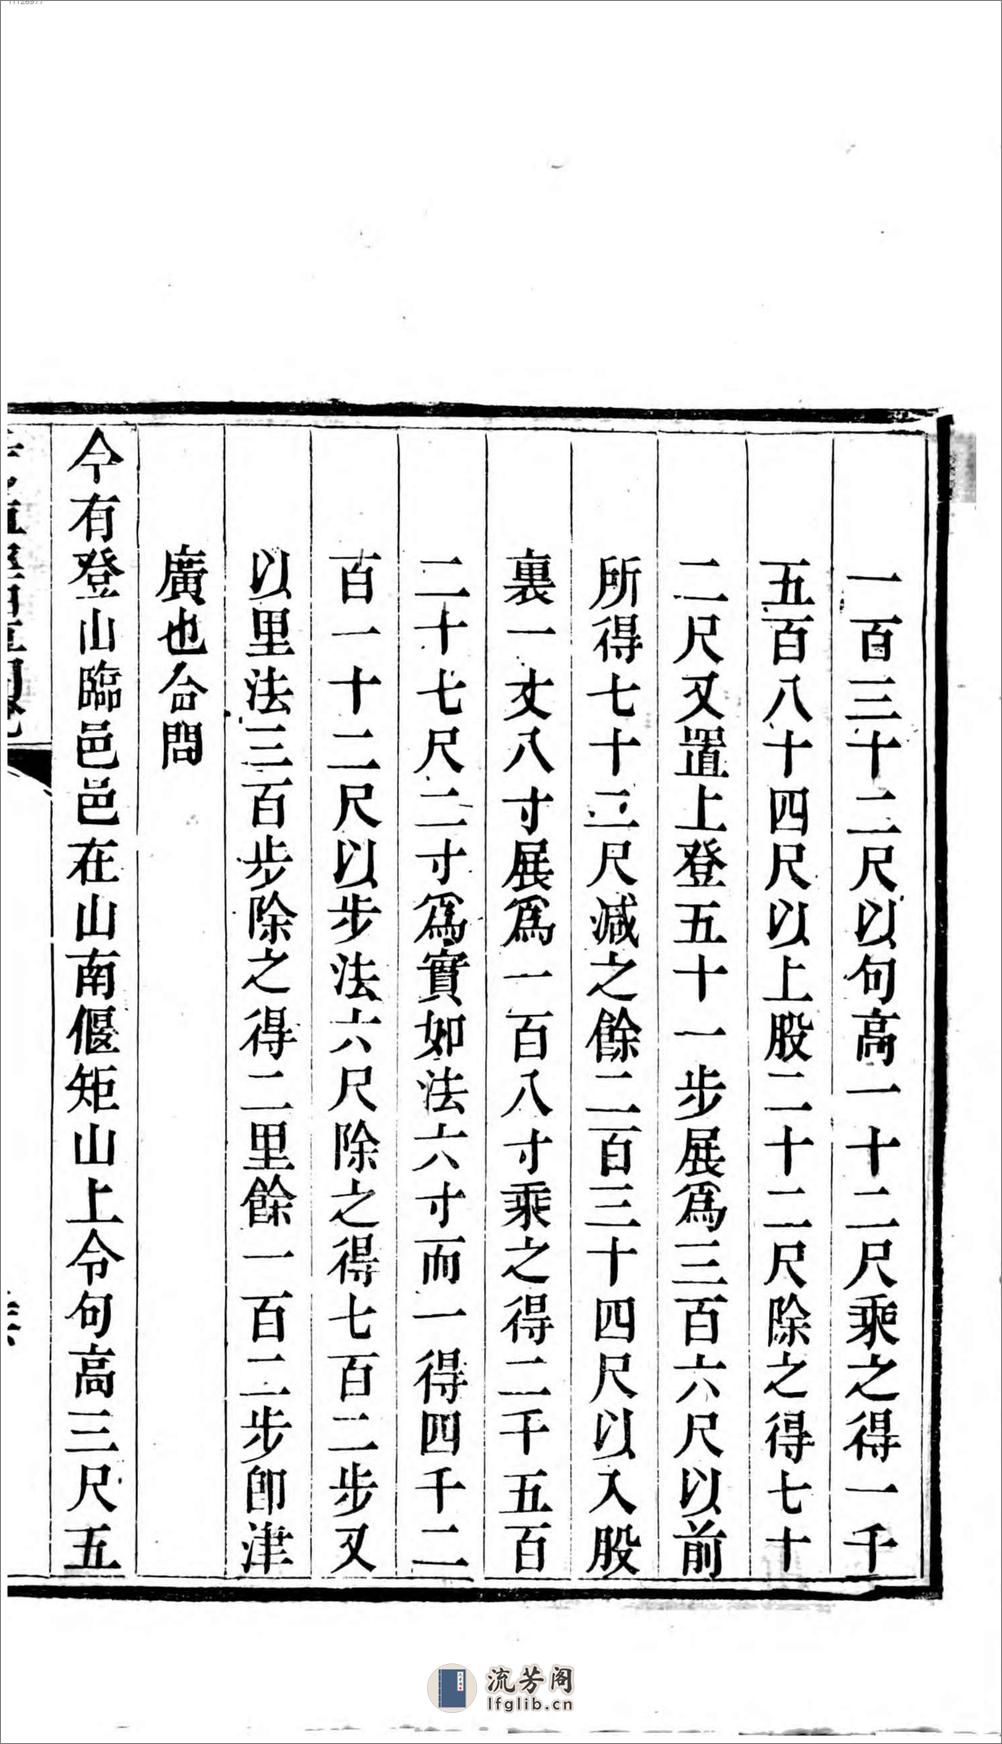 一百三十二尺以句高一十二尺乘之得一千
五百八十四尺以上股二十二尺除之得七十
二尺又置上登五十一步展爲三百六尺以前
所得七十二尺減之餘二百三十四尺以入股
裏一丈八寸展爲一百八寸乘之得二千五百
二十七尺二寸爲實如法六寸而一得四千二
百一十二尺以步法六尺除之得七百二步又
以里法三百步除之得二里餘一百二步卽津
廣也合問
今有登山臨邑邑在山南偃矩山上令句高三尺五
流芳阁
lfglib.cn